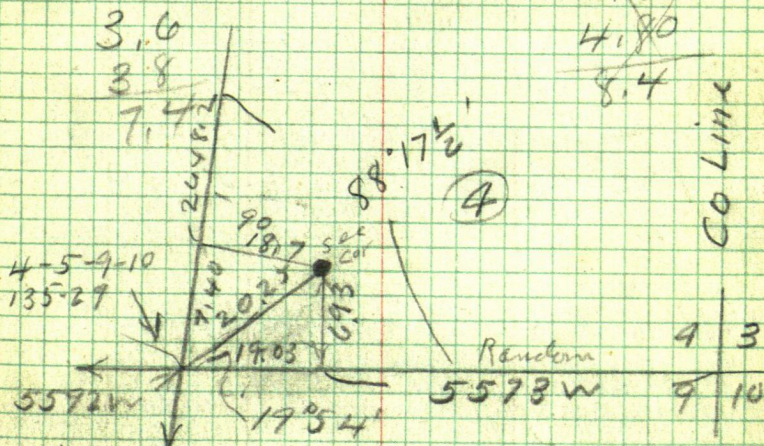 3.6
3 8
7.4
4.80
8.4
Co Line
2648.2
88° 17 1/2'
4
90
18.7
Sec
Cor
4-5-9-10
135-29
7.40
20.25
6.93
19.03
Random
4 3
5592W
19° 54'
5573 W
9 10